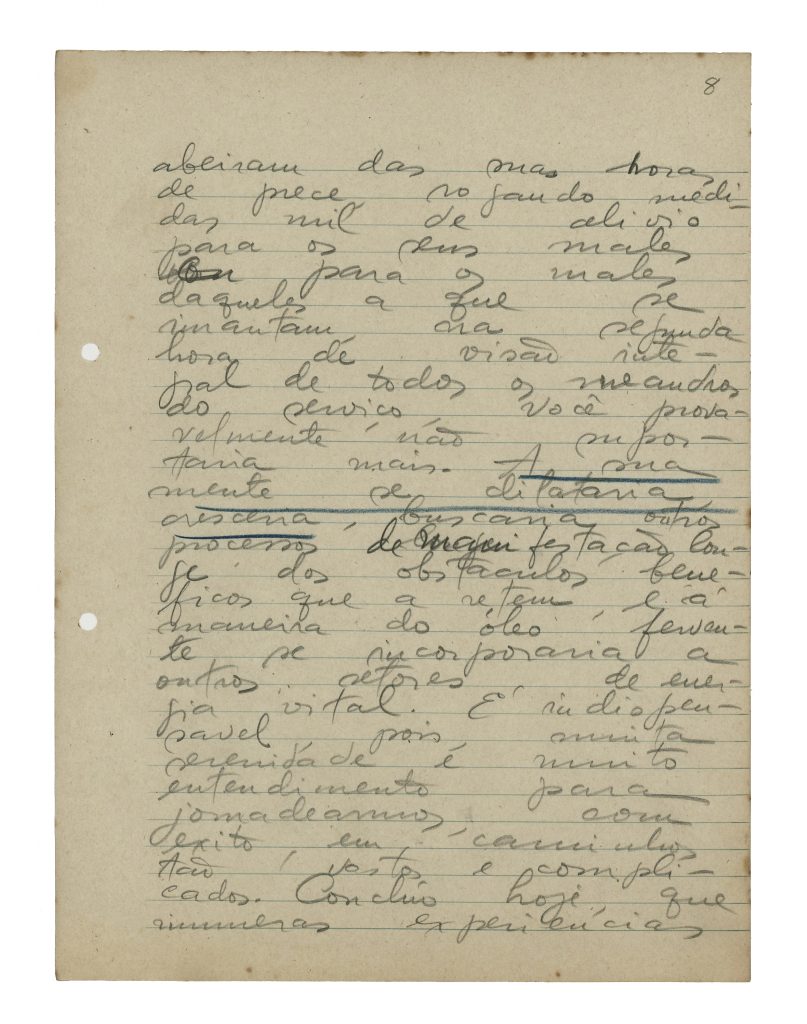 8
abeiram das suas horas
de prece, rogando medi-
das mil de alivio
para os seus males
ou para os males
daqueles a que se
imantam, na segunda
hora de visão inte-
gral de todos os meandros
do serviço, você prova-
velmente não supor-
taria mais. A sua
mente se dilataria,
cresceria, buscaria outros
processos de manifestação lon-
ge dos obstaculos bene-
ficos que a retem, e á
maneira do óleo ferven-
te se incorporaria a
outros setores de ener-
gia vital. É indispen-
savel, pois, muita
serenidade e muito
entendimento para
jornadearmos com
exito, em caminhos
tão vastos e compli-
cados. Concluo hoje, que
inumeras experiências